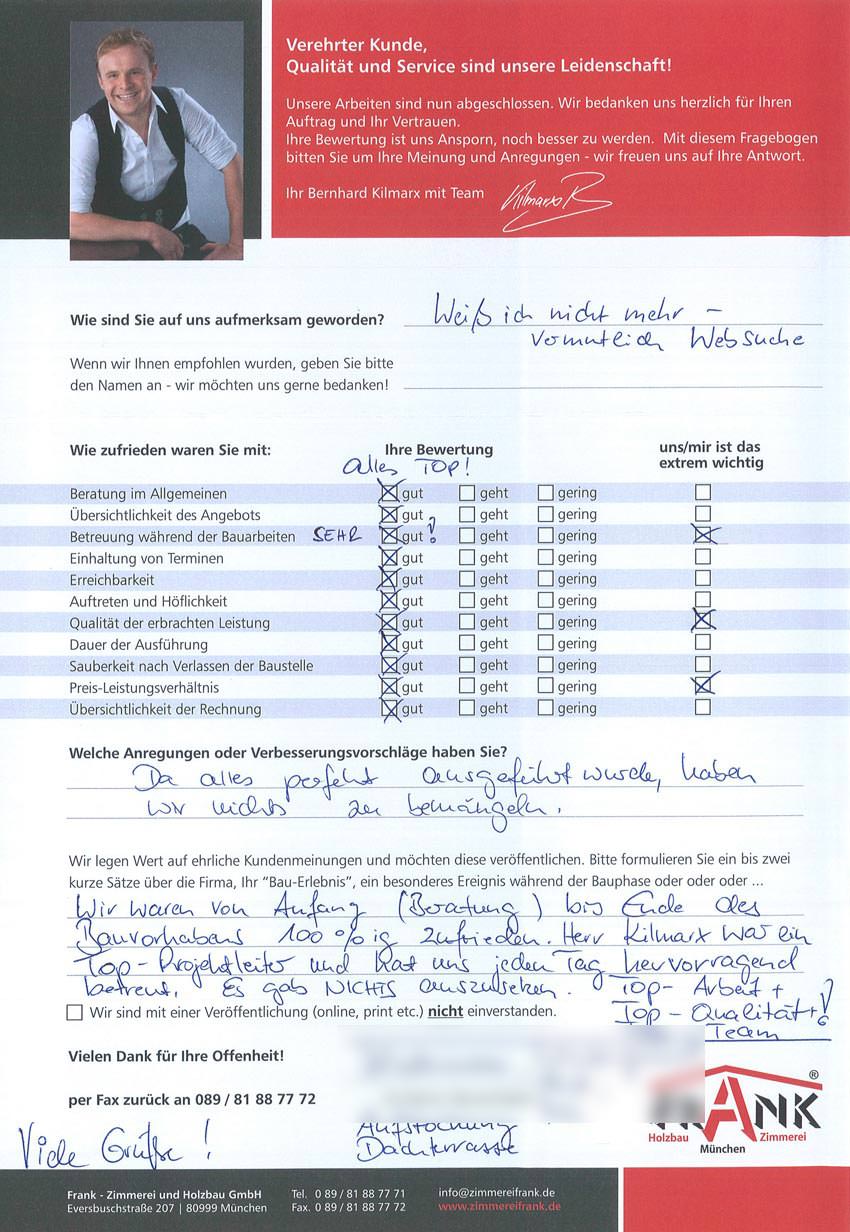 Verehrter Kunde,
Qualität und Service sind unsere Leidenschaft!
Unsere Arbeiten sind nun abgeschlossen. Wir bedanken uns herzlich für Ihren
Auftrag und Ihr Vertrauen.
Ihre Bewertung ist uns Ansporn, noch besser zu werden. Mit diesem Fragebogen
bitten Sie um Ihre Meinung und Anregungen - wir freuen uns auf Ihre Antwort.
Ihr Bernhard Kilmarx mit Team Kilmarx
Wie sind Sie auf uns aufmerksam geworden? Weiß ich nicht mehr –
vermutlich Websuche
Wenn wir Ihnen empfohlen wurden, geben Sie bitte
den Namen an - wir möchten uns gerne bedanken!
Wie zufrieden waren Sie mit: Ihre Bewertung uns/mir ist das
extrem wichtig
alles TOP!
Beratung im Allgemeinen gut geht gering
Übersichtlichkeit des Angebots gut geht gering
Betreuung während der Bauarbeiten SEHR gut ! geht gering
Einhaltung von Terminen gut geht gering
Erreichbarkeit gut geht gering
Auftreten und Höflichkeit gut geht gering
Qualität der erbrachten Leistung gut geht gering
Dauer der Ausführung gut geht gering
Sauberkeit nach Verlassen der Baustelle gut geht gering
Preis-Leistungsverhältnis gut geht gering
Übersichtlichkeit der Rechnung gut geht gering
Welche Anregungen oder Verbesserungsvorschläge haben Sie?
Da alles perfekt ausgeführt wurde, haben
wir nichts zu bemängeln.
Wir legen Wert auf ehrliche Kundenmeinungen und möchten diese veröffentlichen. Bitte formulieren Sie ein bis zwei
kurze Sätze über die Firma, Ihr "Bau-Erlebnis", ein besonderes Ereignis während der Bauphase oder oder oder ...
Wir waren von Anfang (Beratung) bis Ende des
Bauvorhabens 100%ig zufrieden. Herr Kilmarx war ein
Top-Projektleiter und hat uns jeden Tag hervorragend
betreut. Es gab NICHTS auszusetzen. Top- Arbeit +
Top-Qualität + !
Team
Wir sind mit einer Veröffentlichung (online, print etc.) nicht einverstanden.
Vielen Dank für Ihre Offenheit!
per Fax zurück an 089 / 81 88 77 72
Viele Grüße !
Aufstockung
Dachterrasse
FRANK ®
Holzbau Zimmerei
München
Frank - Zimmerei und Holzbau GmbH Tel. 0 89 / 81 88 77 71 info@zimmereifrank.de
Eversbuschstraße 207 | 80999 München Fax. 0 89 / 81 88 77 72 www.zimmereifrank.de